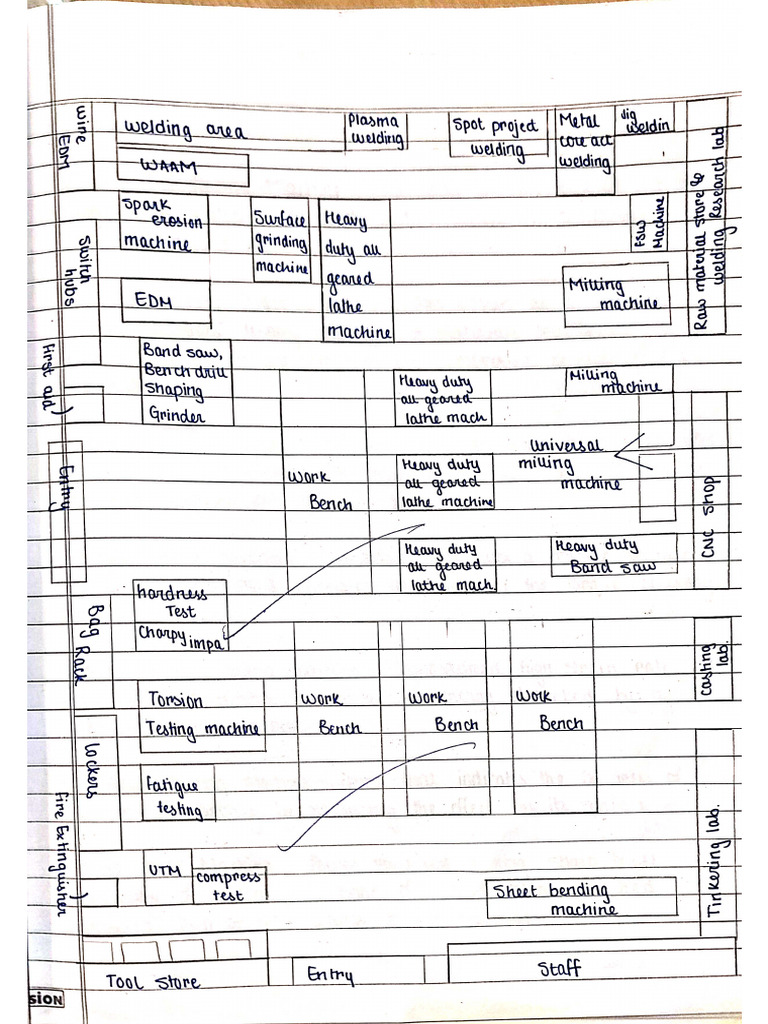 Wire
EDM
Welding area
WAAM
Plasma
welding
Spot project
welding
Metal
core act
welding
Jig
weldin
Raw material store &
welding Research lab
Spark
erosion
machine
Surface
grinding
machine
Heavy
duty all
geared
lathe
machine
FSW
Machine
Switch
hubs
EDM
Milling
machine
First aid
Band saw,
Bench drill
Shaping
Grinder
Heavy duty
all geared
lathe mach
Milling
machine
Entry
Work
Bench
Heavy duty
all geared
lathe machine
Universal
milling
machine
CNC Shop
Heavy duty
all geared
lathe mach.
Heavy duty
Band saw
Bag Rack
hardness
Test
Charpy impa
Casting
lab.
Torsion
Testing machine
Work
Bench
Work
Bench
Work
Bench
lockers
Fatigue
testing
Tinkering lab.
Fire Extinguisher
UTM
compress
test
Sheet bending
machine
Tool Store
Entry
Staff
SION